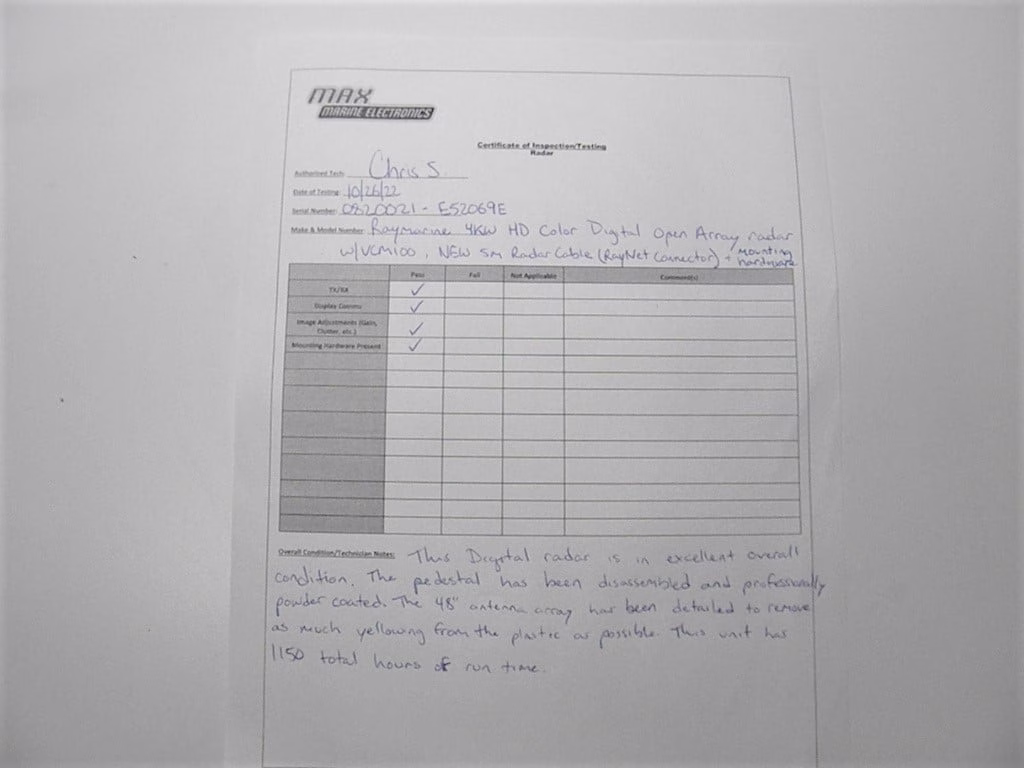 MAX
MARINE ELECTRONICS
Certificate of Inspection/Testing
Radar
Authorized Tech: Chris S.
Date of Testing: 10/26/22
Serial Number: 0820021 - E52069E
Make & Model Number: Raymarine 4KW HD Color Digital Open Array radar
w/VCM100, NEW 5M Radar Cable (RayNet Connector) + mounting hardware
Pass Fail Not Applicable Comment(s)
TX/RX ✓
Display Comms ✓
Image Adjustments (Gain,
Clutter, etc.) ✓
Mounting Hardware Present ✓
Overall Condition/Technician Notes: This Digital radar is in excellent overall
condition. The pedestal has been disassembled and professionally
powder coated. The 48" antenna array has been detailed to remove
as much yellowing from the plastic as possible. This unit has
1150 total hours of run time.